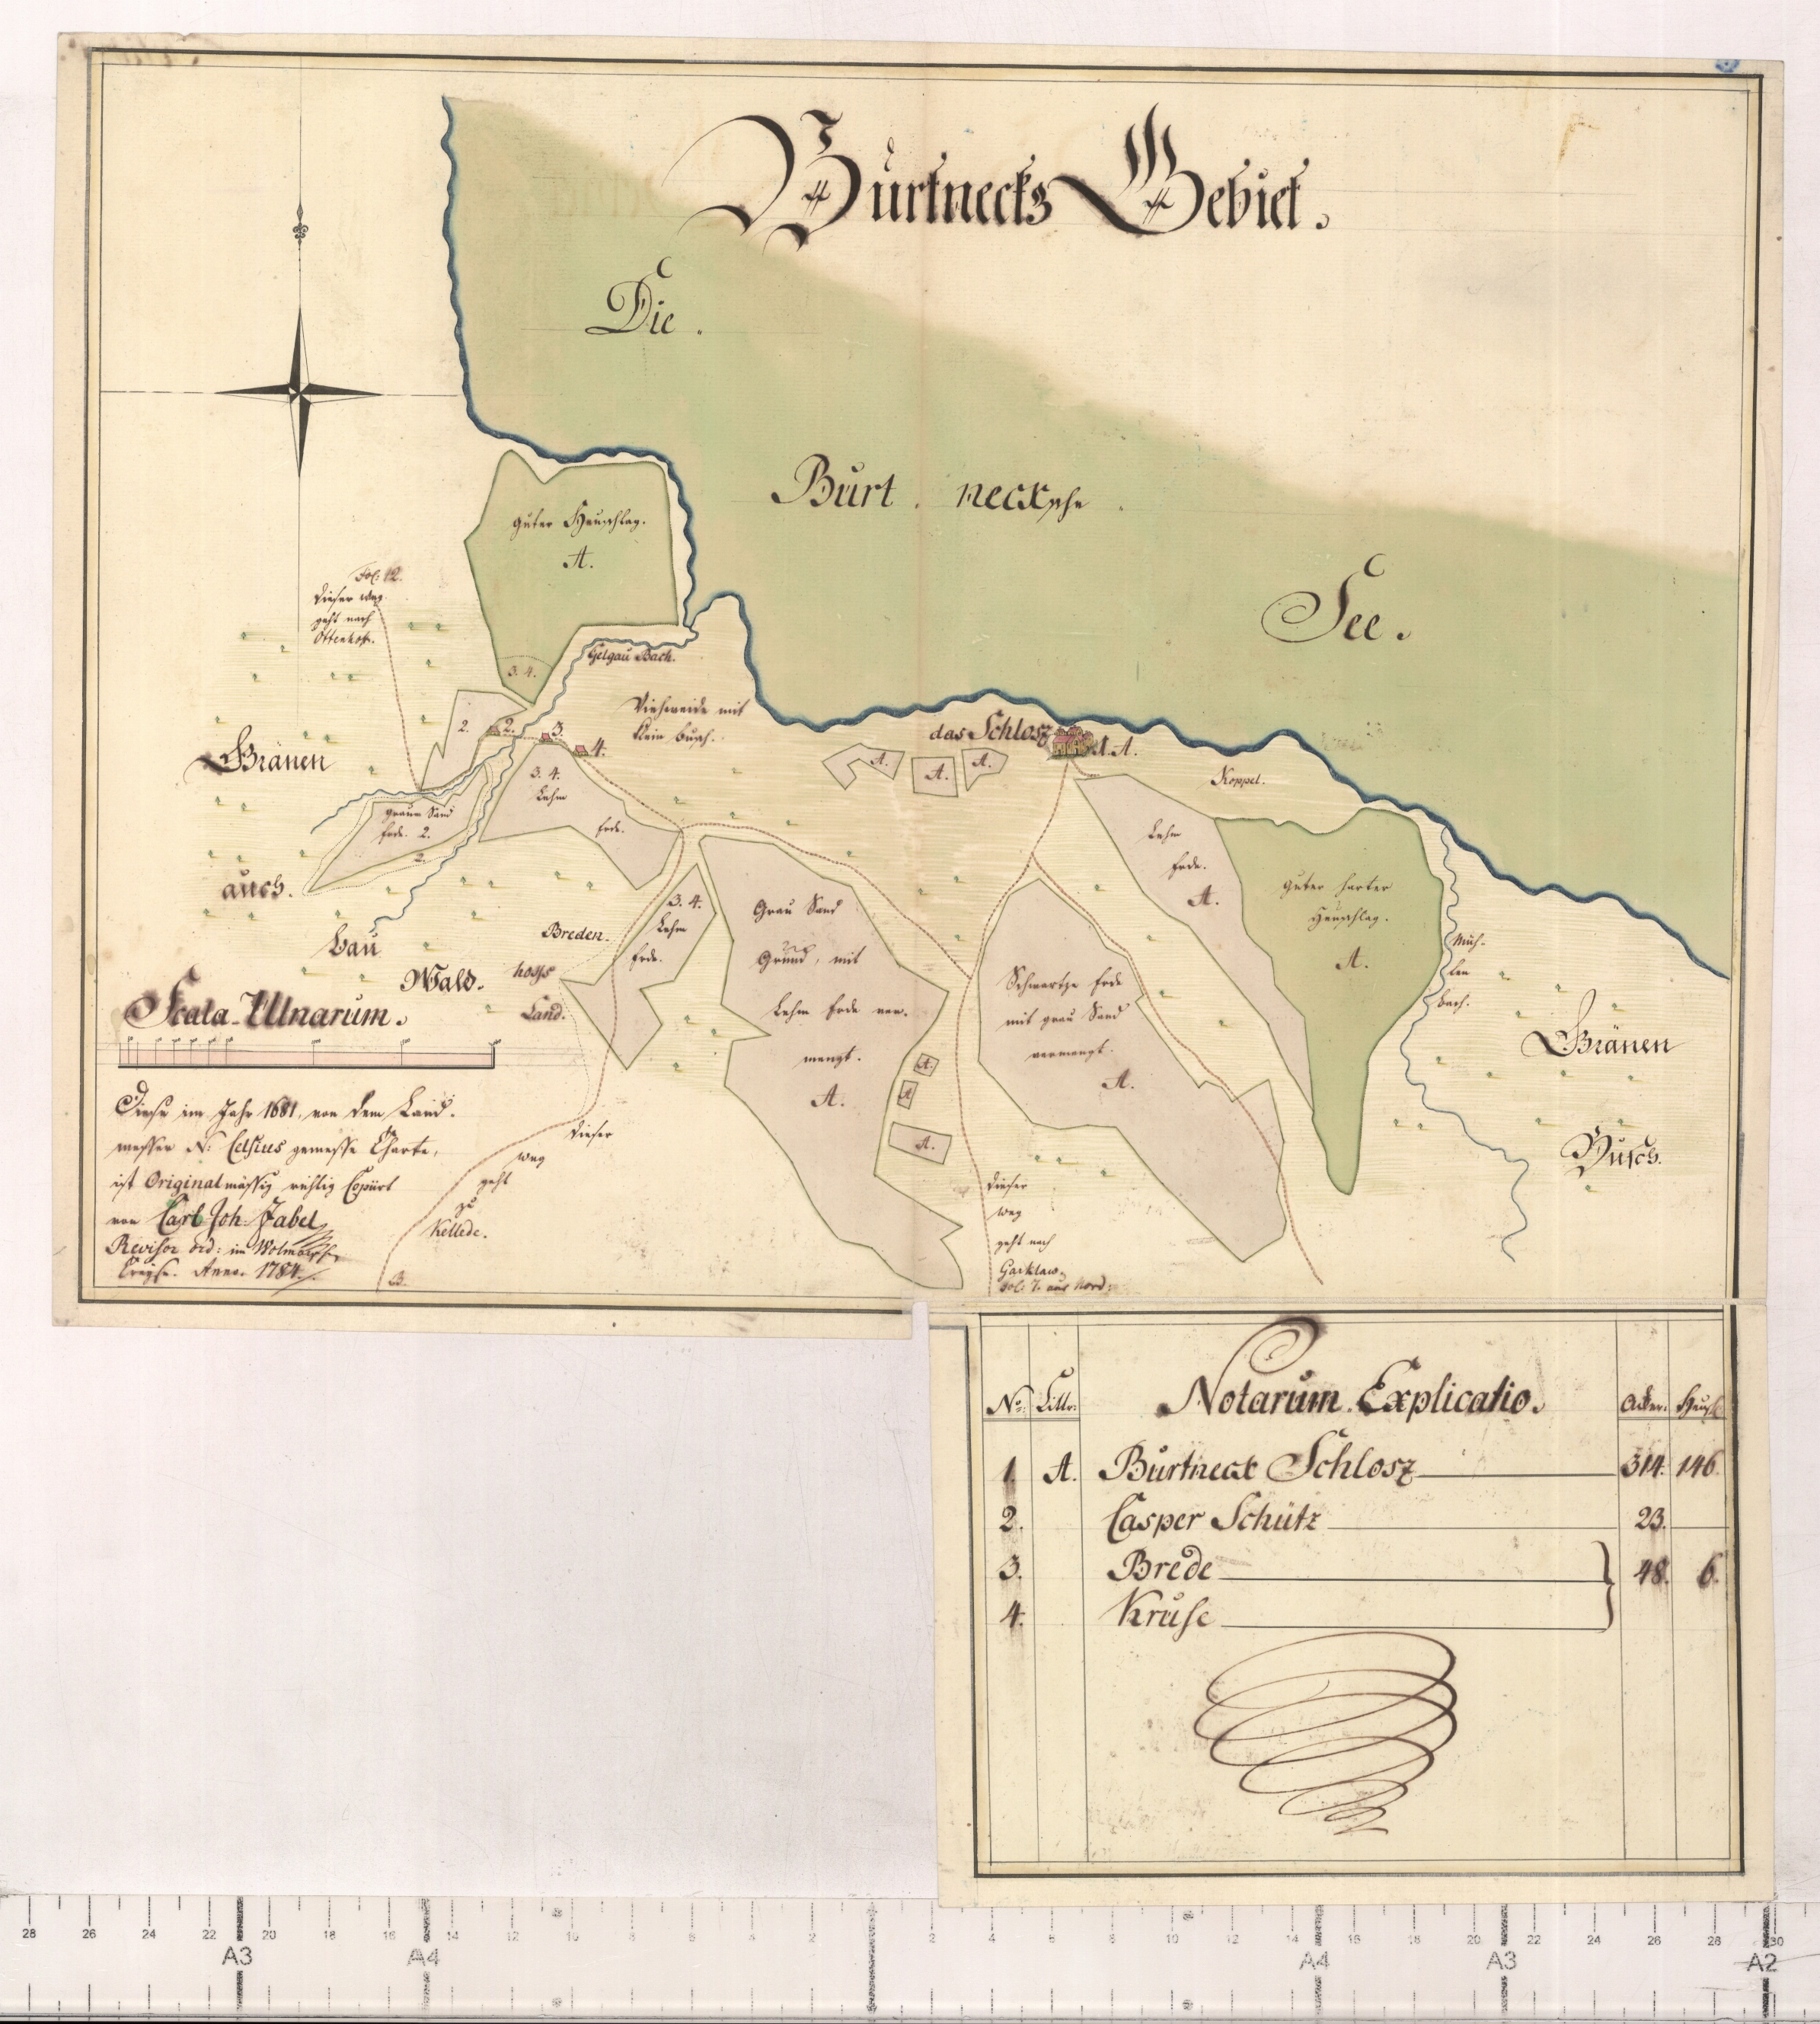 Burtnecks Gebiet.
Die.
Burt. necksche
See.
guter Heuschlag.
A.
Fol: 12.
dieser weg
geht nach
Ottenhof.
3. 4.
Gelgau Bach.
Viehweide mit
klein busch.
2.
2.
3.
4.
das Schlosz
1. A.
A.
A.
A.
Koppel.
Gränen
3. 4.
Lehm
Erde.
graue Sand
Erde. 2.
2.
auch.
bau
Wald.
Breden.
hoffs
Land.
3. 4.
Lehm
Erde.
Grau Sand
Grund, mit
Lehm Erde ver.
mengt.
A.
A.
A.
A.
Schwartze Erde
mit grau Sand
vermengt.
A.
Lehm
Erde.
A.
guter harter
Heuschlag.
A.
Müh-
len
bach.
Gränen
Busch.
Scala Ulnarum.
Diese im Jahr 1681. von dem Land.
messer N: Celsius gemesste Charte,
ist Originalmässig richtig Copiirt
von Carl Joh. Jabel
Revisor ord: im Wolmarsch.
Creyse. Anno. 1784.
dieser
weg
geht
zu
Kellede.
B.
dieser
weg
geht nach
Garklaw.
fol: 7. aus Nord:
Notarum Explicatio.
No. Littr: Acker. Heusch
1. A. Burtneck Schlosz 314. 146.
2. Casper Schütz 23.
3. Brede 48. 6.
4. Kruse
28 26 24 22 20 18 16 14 12 10 8 6 4 2 2 4 6 8 10 12 14 16 18 20 22 24 26 28 30
A3 A4 A4 A3 A2